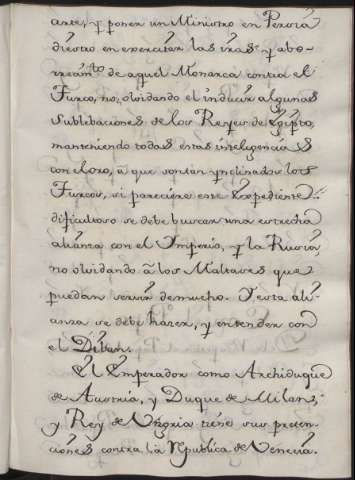 arte, y poner un Ministro en Persia
diestro en exercitar las iras, y abo-
recimto. de aquel Monarca contra el
Turco, no olvidando el inducir algunas
Sublebaciones de los Reyes de Egipto,
manteniendo todas estas intelegencias
con el oro, a que son tan ynclinados los
Turcos, si pareciere este Expediente
dificultoso se debe buscar una estrecha
alianza con el Imperio, y la Rusia,
no olvidando â los Maltaves que
puedan servir de mucho. Y esta ali-
anza se debe hazer, y entender con
el Diban.
El Emperador como Archiduque
de Austria, y Duque de Milan,
y Rey de Ungria tiene sus preten-
ciones contra la Republica de Venecia.